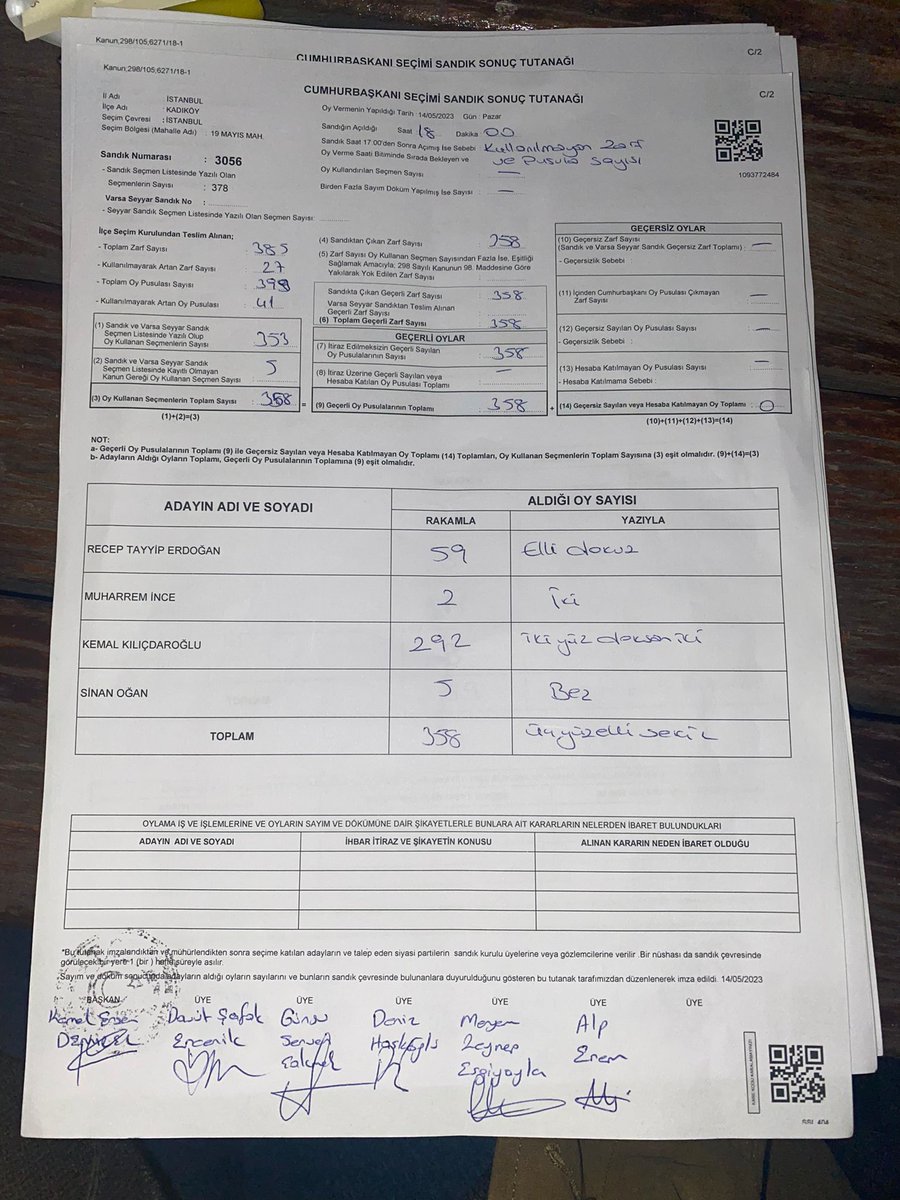 Kanun,298/105,6271/18-1
C/2
CUMHURBAŞKANI SEÇİMİ SANDIK SONUÇ TUTANAĞI
Kanun,298/105,6271/18-1
CUMHURBAŞKANI SEÇİMİ SANDIK SONUÇ TUTANAĞI
C/2
İl Adı : İSTANBUL
İlçe Adı : KADIKÖY
Seçim Çevresi : İSTANBUL
Seçim Bölgesi (Mahalle Adı) : 19 MAYIS MAH.
Sandık Numarası : 3056
- Sandık Seçmen Listesinde Yazılı Olan
Seçmenlerin Sayısı : 378
Varsa Seyyar Sandık No :
- Seyyar Sandık Seçmen Listesinde Yazılı Olan Seçmen Sayısı:
Oy Vermenin Yapıldığı Tarih : 14/05/2023 Gün : Pazar
Sandığın Açıldığı Saat 18 Dakika 00
Sandık Saat 17.00'den Sonra Açımış İse Sebebi : Kullanılmayan zarf
Oy Verme Saati Bitiminde Sırada Bekleyen ve ve Pusula sayısı
Oy Kullandırılan Seçmen Sayısı : —
Birden Fazla Sayım Döküm Yapılmış İse Sayısı : —
1093772484
İlçe Seçim Kurulundan Teslim Alınan;
- Toplam Zarf Sayısı : 385
- Kullanılmayarak Artan Zarf Sayısı : 27
- Toplam Oy Pusulası Sayısı : 399
- Kullanılmayarak Artan Oy Pusulası : 41
(1) Sandık ve Varsa Seyyar Sandık
Seçmen Listesinde Yazılı Olup
Oy Kullanan Seçmenlerin Sayısı : 353
(2) Sandık ve Varsa Seyyar Sandık
Seçmen Listesinde Kayıtlı Olmayan
Kanun Gereği Oy Kullanan Seçmen Sayısı : 5
(3) Oy Kullanan Seçmenlerin Toplam Sayısı : 358 =
(1)+(2)=(3)
(4) Sandıktan Çıkan Zarf Sayısı : 358
(5) Zarf Sayısı Oy Kullanan Seçmen Sayısından Fazla İse, Eşitliği
Sağlamak Amacıyla; 298 Sayılı Kanunun 98. Maddesine Göre
Yakılarak Yok Edilen Zarf Sayısı :
Sandıkta Çıkan Geçerli Zarf Sayısı : 358
Varsa Seyyar Sandıktan Teslim Alınan
Geçerli Zarf Sayısı :
(6) Toplam Geçerli Zarf Sayısı : 358
GEÇERLİ OYLAR
(7) İtiraz Edilmeksizin Geçerli Sayılan
Oy Pusulalarının Sayısı : 358
(8) İtiraz Üzerine Geçerli Sayılan veya
Hesaba Katılan Oy Pusulası Toplamı : —
(9) Geçerli Oy Pusulalarının Toplamı : 358 +
GEÇERSİZ OYLAR
(10) Geçersiz Zarf Sayısı
(Sandık ve Varsa Seyyar Sandık Geçersiz Zarf Toplamı) : —
- Geçersizlik Sebebi :
(11) İçinden Cumhurbaşkanı Oy Pusulası Çıkmayan
Zarf Sayısı : —
(12) Geçersiz Sayılan Oy Pusulası Sayısı : —
- Geçersizlik Sebebi :
(13) Hesaba Katılmayan Oy Pusulası Sayısı : —
- Hesaba Katılmama Sebebi :
(14) Geçersiz Sayılan veya Hesaba Katılmayan Oy Toplamı : 0
(10)+(11)+(12)+(13)=(14)
NOT:
a- Geçerli Oy Pusulalarının Toplamı (9) ile Geçersiz Sayılan veya Hesaba Katılmayan Oy Toplamı (14) Toplamları, Oy Kullanan Seçmenlerin Toplam Sayısına (3) eşit olmalıdır. (9)+(14)=(3)
b- Adayların Aldığı Oyların Toplamı, Geçerli Oy Pusulalarının Toplamına (9) eşit olmalıdır.
ADAYIN ADI VE SOYADI
ALDIĞI OY SAYISI
RAKAMLA YAZIYLA
RECEP TAYYİP ERDOĞAN 59 Elli dokuz
MUHARREM İNCE 2 İki
KEMAL KILIÇDAROĞLU 292 iki yüz doksan iki
SİNAN OĞAN 5 Beş
TOPLAM 358 üçyüzelli sekiz
OYLAMA İŞ VE İŞLEMLERİNE VE OYLARIN SAYIM VE DÖKÜMÜNE DAİR ŞİKAYETLERLE BUNLARA AİT KARARLARIN NELERDEN İBARET BULUNDUKLARI
ADAYIN ADI VE SOYADI İHBAR İTİRAZ VE ŞİKAYETİN KONUSU ALINAN KARARIN NEDEN İBARET OLDUĞU
*Bu tutanak imzalandıktan ve mühürlendikten sonra seçime katılan adayların ve talep eden siyasi partilerin sandık kurulu üyelerine veya gözlemcilerine verilir. Bir nüshası da sandık çevresinde
görülecek bir yere 1 (bir ) hafta süreyle asılır.
Sayım ve döküm sonucunda adayların aldığı oyların sayılarını ve bunların sandık çevresinde bulunanlara duyurulduğunu gösteren bu tutanak tarafımızdan düzenlenerek imza edildi. 14/05/2023
BAŞKAN ÜYE ÜYE ÜYE ÜYE ÜYE ÜYE
Davut Şafak Deniz Meryem Alp
Zeynep Eren